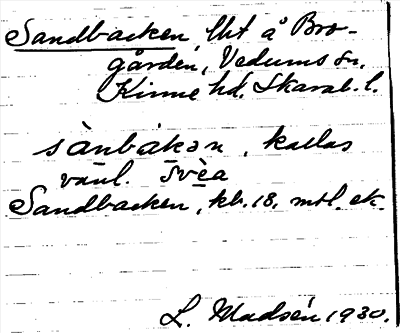 Sandbacken lht å Bro-
gården, Vedums sn.
Kinne hd. Skarab. l.
sànbákən, kallas
vanl. svèa
Sandbacken, kb. 18. mtl. ek.
L. Madsén 1930.